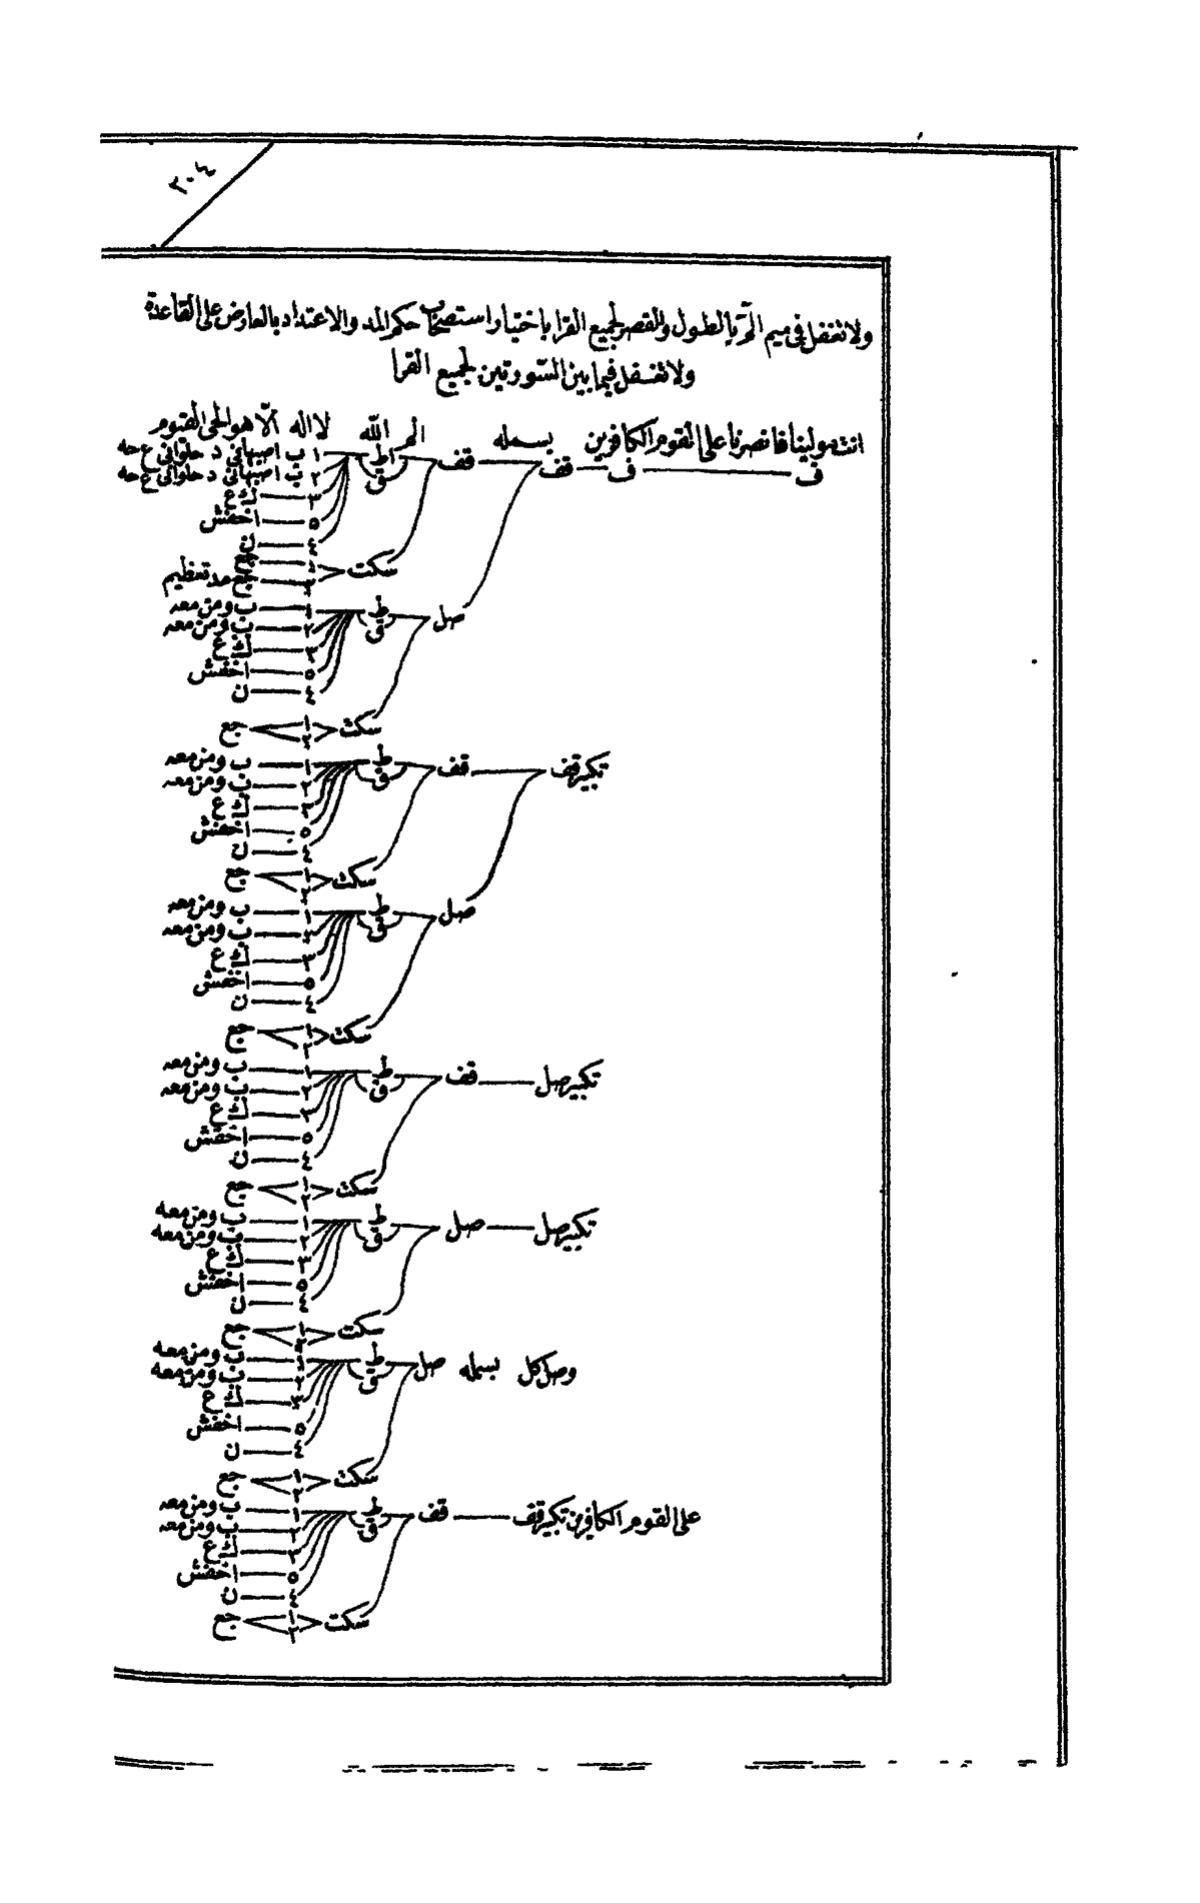 ٢٠٤
ولا تغفل فى ميم الٓمّ بالطول والقصر لجميع القرا باختيار استصحاب حكم المد والاعتداد بالعارض على القاعدة
ولا تغفل فيما بين السّورتين لجميع القرا
انت مولينا فانصرنا على القوم الكافرين بسمله الم الله لا اله الّا هو الحى القيوم
ف ف قف قف ط ١ ب اصبهانى د حلوانى ع حه
ق ٢ ب اصبهانى د حلوانى ع حه
٣ ك ع
٥ اخفش
٤ ن
سكت ١ جع
٢ جع مد تعظيم
صل ط ١ ب ومن معه
ق ٢ ب ومن معه
٣ ك ع
٥ اخفش
٤ ن
سكت ١ ٢ جع
تكبير قف قف ط ١ ب ومن معه
ق ٢ ب ومن معه
٣ ك ع
٥ اخفش
٤ ن
سكت ١ ٢ جع
صل ط ١ ب ومن معه
ق ٢ ب ومن معه
٣ ك ع
٥ اخفش
٤ ن
سكت ١ ٢ جع
تكبير صل قف ط ١ ب ومن معه
ق ٢ ب ومن معه
٣ ك ع
٥ اخفش
٤ ن
سكت ١ ٢ جع
تكبير صل صل ط ١ ب ومن معه
ق ٢ ب ومن معه
٣ ك ع
٥ اخفش
٤ ن
سكت ١ ٢ جع
وصل كل بسمله صل ط ١ ب ومن معه
ق ٢ ب ومن معه
٣ ك ع
٥ اخفش
٤ ن
سكت ١ ٢ جع
على القوم الكافرين تكبير قف قف ط ١ ب ومن معه
ق ٢ ب ومن معه
٣ ك ع
٥ اخفش
٤ ن
سكت ١ ٢ جع